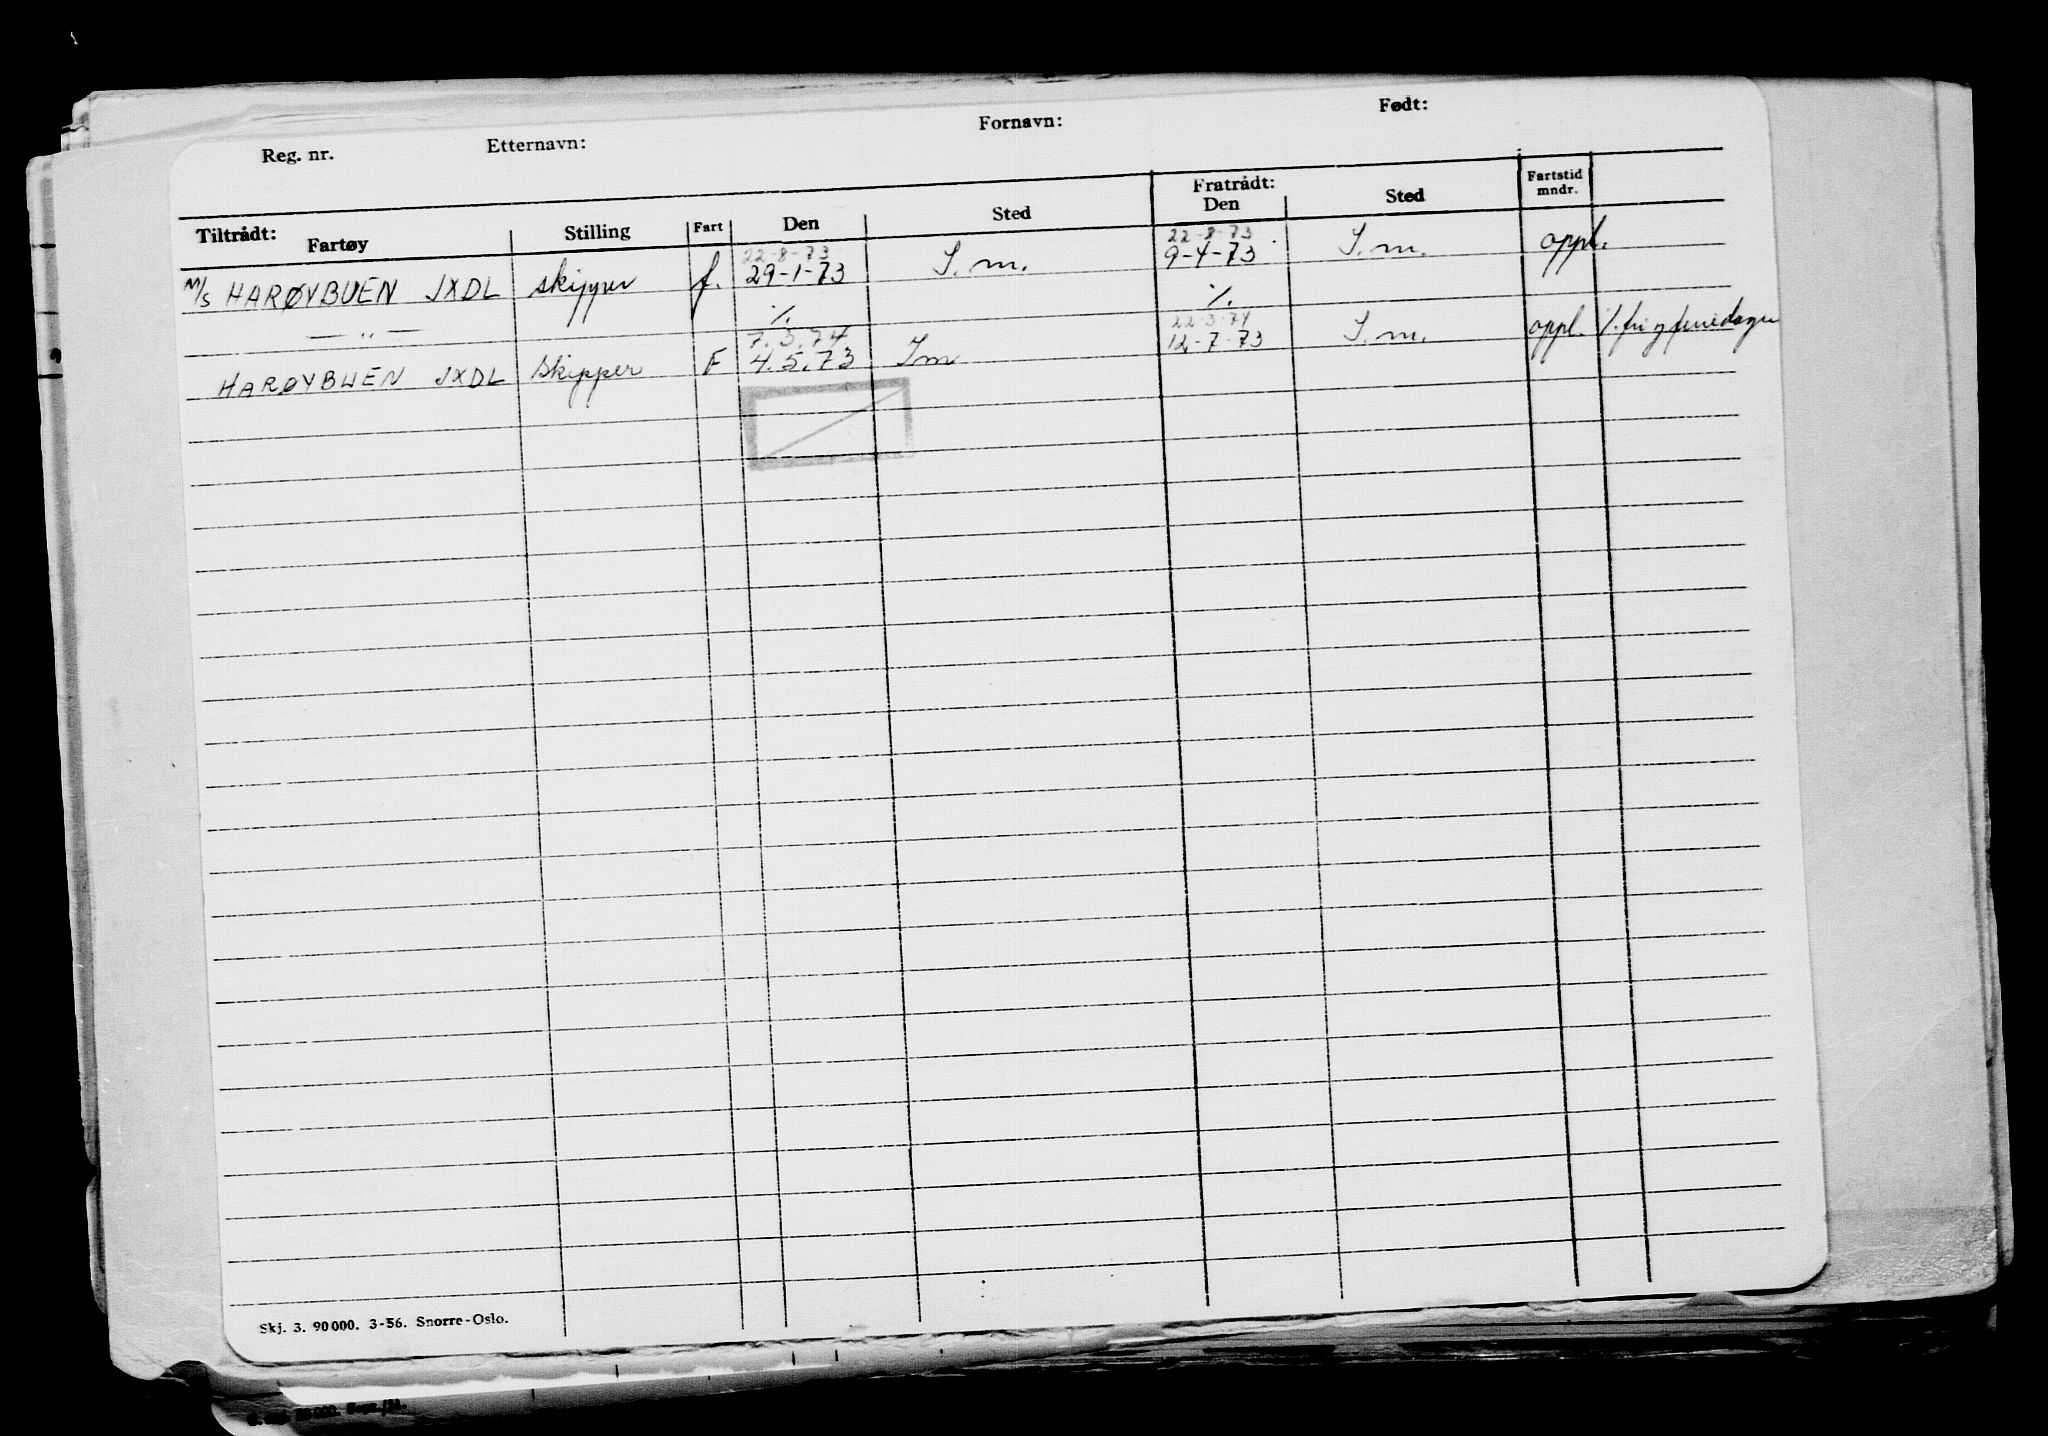 Reg. nr. Etternavn: Fornavn: Født:
Tiltrådt: Fratrådt: Fartstid mndr.
Fartøy Stilling Fart Den Sted Den Sted
22-8-73 22-8-73
M/S HARØYBUEN JXDL skipper f. 29-1-73 S.m. 9-4-73 S.m. oppl.
— " — ./. ./.
7.3.74 22-3-74
HARØYBUEN JXDL Skipper F 4.5.73 Sm 12-7-73 S.m. oppl. ./. fri og feriedager
Skj. 3. 90 000. 3-56. Snorre-Oslo.